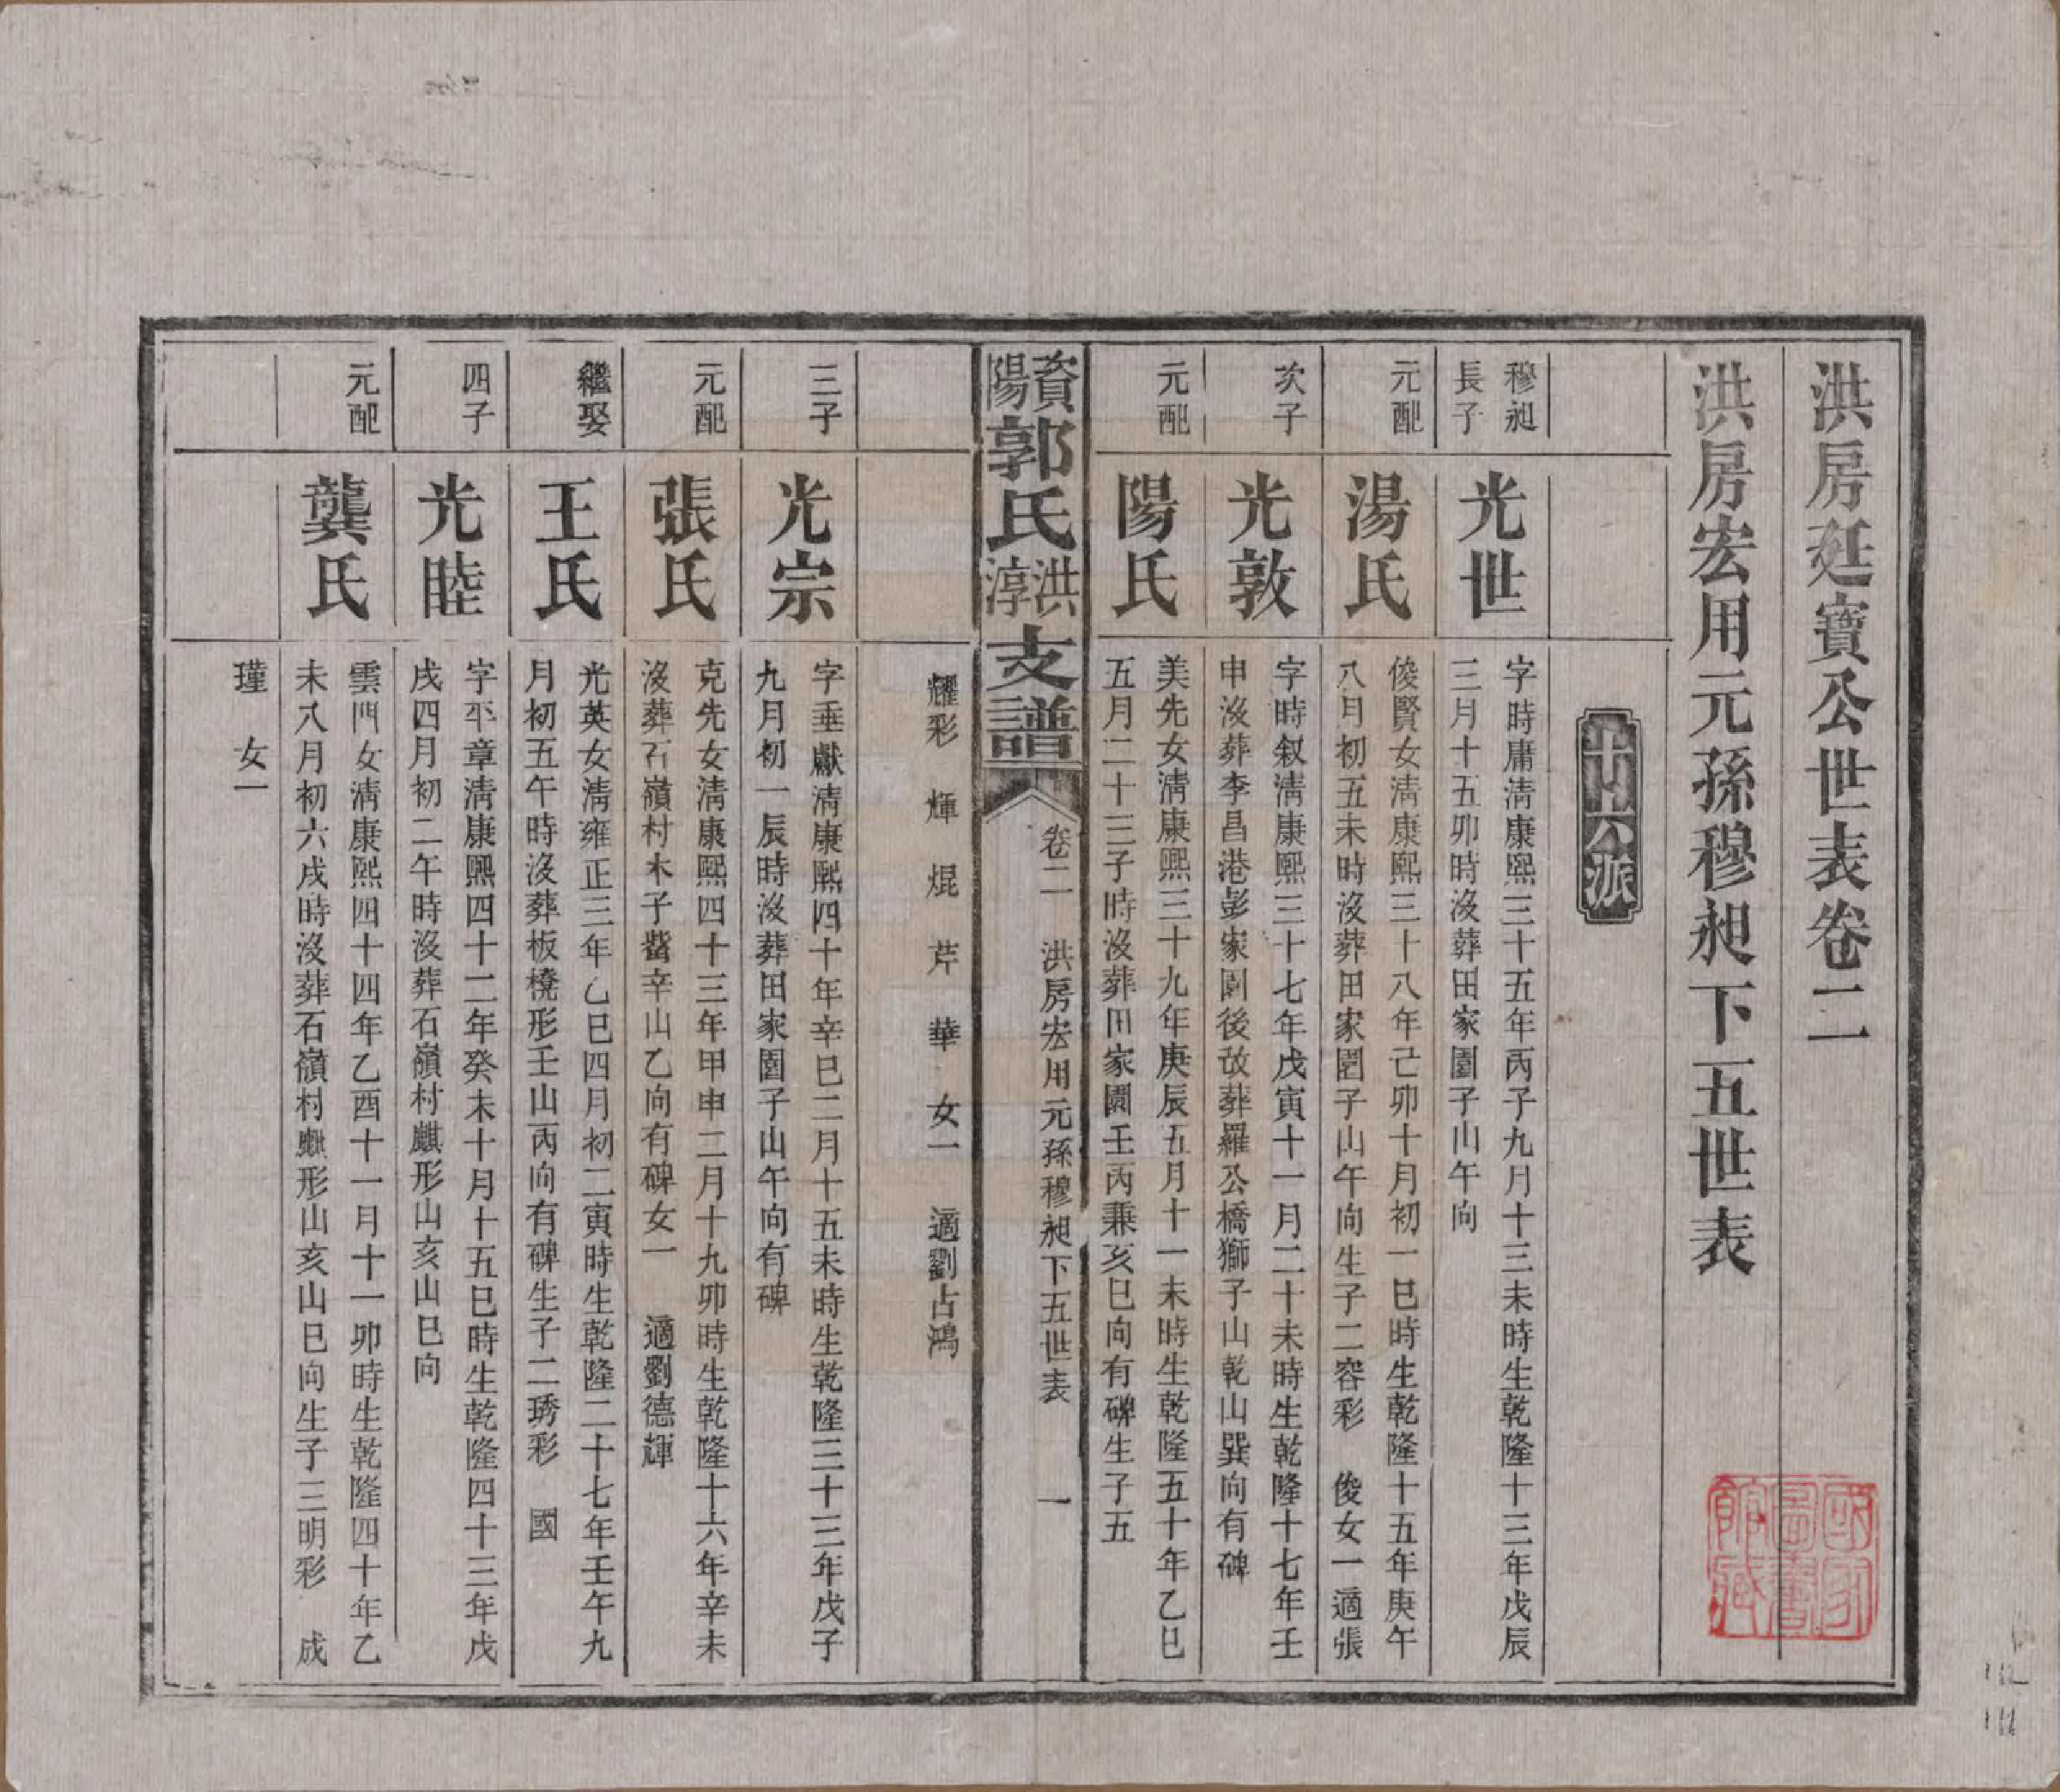 洪房廷寶公世表卷二
洪房宏用元孫穆昶下五世表
十六派
穆昶
長子
光世
字時庸淸康熙三十五年丙子九月十三未時生乾隆十三年戊辰
三月十五卯時沒葬田家園子山午向
元配
湯氏
俊賢女淸康熙三十八年己卯十月初一巳時生乾隆十五年庚午
八月初五未時沒葬田家園子山午向生子二容彩 俊女一適張
次子
光敦
字時叙淸康熙三十七年戊寅十一月二十未時生乾隆十七年壬
申沒葬李昌港彭家園後攺葬羅公橋獅子山乾山巽向有碑
元配
陽氏
美先女淸康熙三十九年庚辰五月十一未時生乾隆五十年乙巳
五月二十三子時沒葬田家園壬丙兼亥巳向有碑生子五
資陽郭氏洪淳支譜
卷二 洪房宏用元孫穆昶下五世表 一
耀彩 煇 焜 芹 華 女一 適劉占鴻
三子
光宗
字垂獻淸康熙四十年辛巳二月十五未時生乾隆三十三年戊子
九月初一辰時沒葬田家園子山午向有碑
元配
張氏
克先女淸康熙四十三年甲申二月十九卯時生乾隆十六年辛未
沒葬石嶺村木子辛山乙向有碑女一 適劉德輝
繼娶
王氏
光英女淸雍正三年乙巳四月初二寅時生乾隆二十七年壬午九
月初五午時沒葬板橈形壬山丙向有碑生子二琇彩 國
四子
光睦
字平章淸康熙四十二年癸未十月十五巳時生乾隆四十三年戊
戌四月初二午時沒葬石嶺村麒形山亥山巳向
元配
龔氏
雲門女淸康熙四十四年乙酉十一月十一卯時生乾隆四十年乙
未八月初六戌時沒葬石嶺村形山亥山巳向生子三明彩 成
瑾 女一
國家圖書館藏